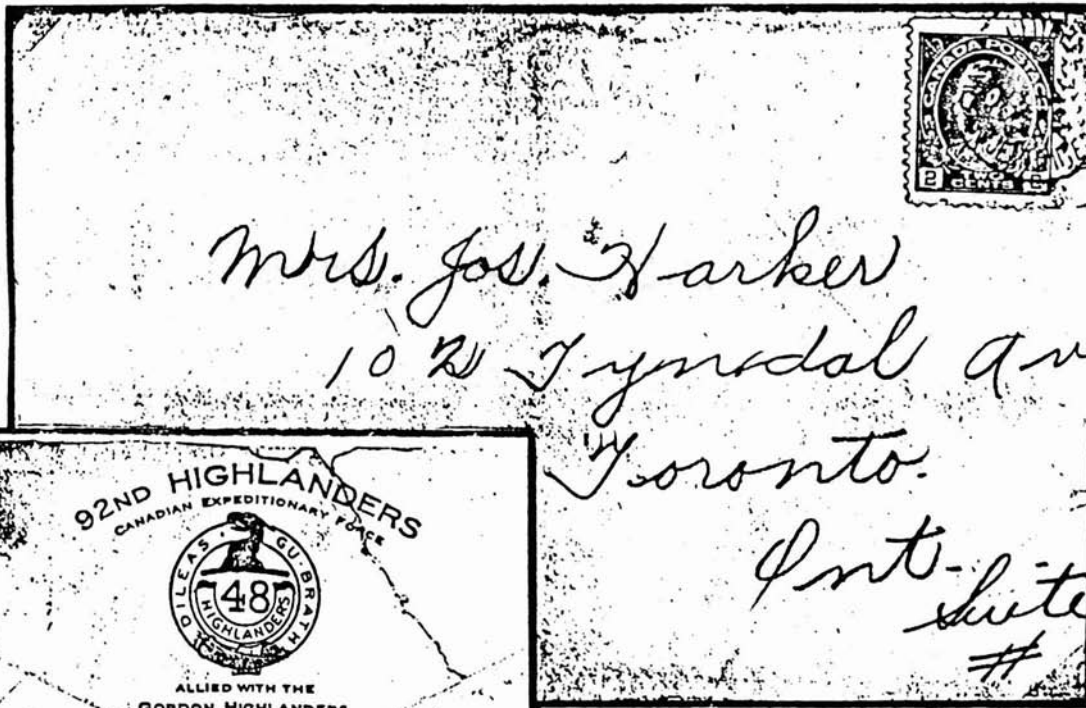 CANADA POSTAGE
2 TWO CENTS 2
Mrs. Jos. Harker
102 Tyndal Av
Toronto.
Ont.
Suite
#
92ND HIGHLANDERS
CANADIAN EXPEDITIONARY FORCE
DILEAS GU BRATH
48
HIGHLANDERS
ALLIED WITH THE
GORDON HIGHLANDERS